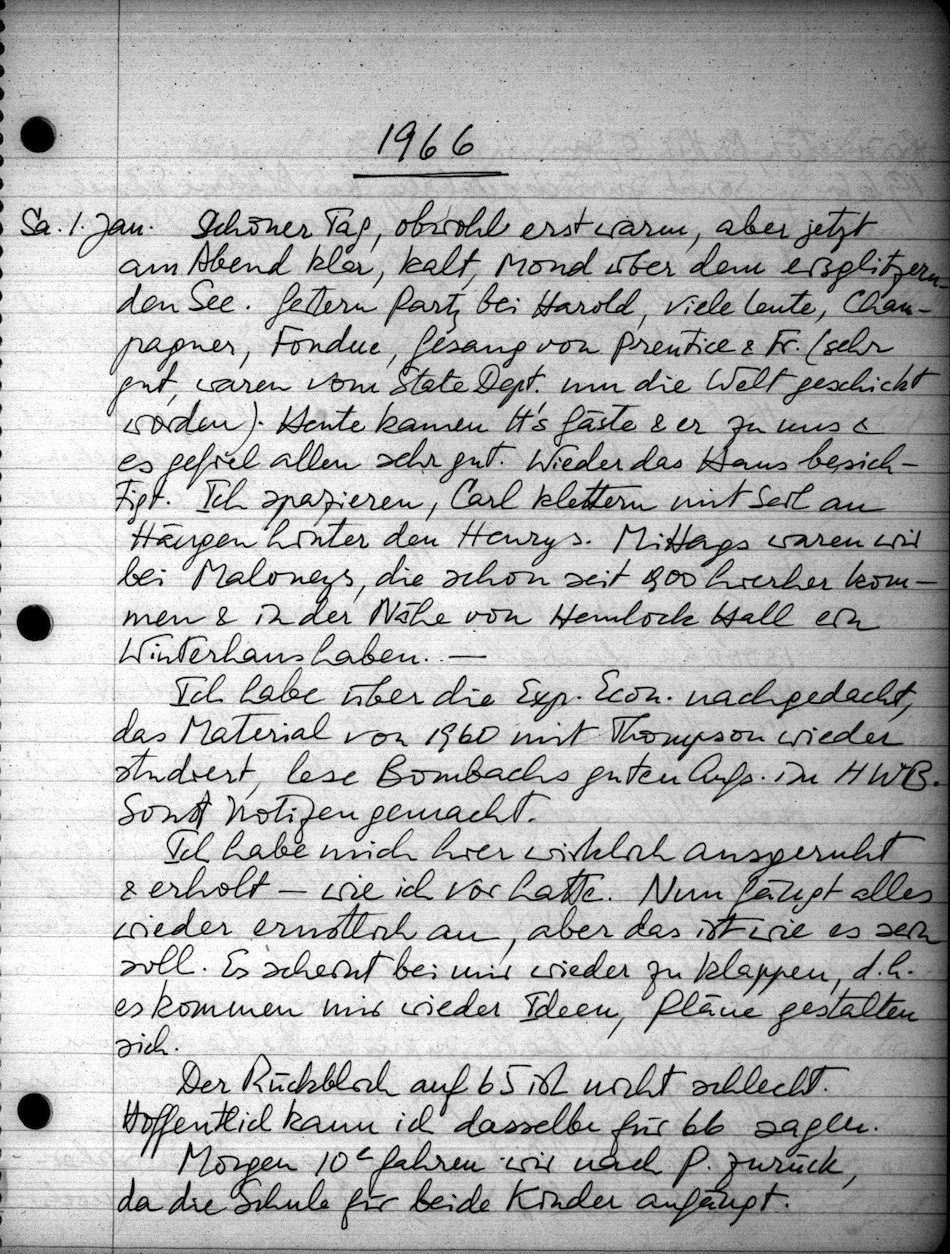 1966
Sa. 1. Jan. Schöner Tag, obwohl erst warm, aber jetzt
am Abend klar, kalt, Mond über dem eisglitzern-
den See. Gestern Party bei Harold, viele Leute, Cham-
pagner, Fondue, Gesang von Prentice & Fr. (sehr
gut, waren vom State Dept. um die Welt geschickt
worden). Heute kamen H's Gäste & er zu uns &
es gefiel allen sehr gut. Wieder das Haus besich-
tigt. Ich spazieren, Carl klettern mit Seil an
Hängen hinter den Henrys. Mittags waren wir
bei Maloneys, die schon seit 1900 hierher kom-
men & in der Nähe von Hemlock Hall ein
Winterhaus haben. —
Ich habe über die Exp. Econ. nachgedacht,
das Material von 1960 mit Thompson wieder
studiert, lese Bombachs guten Aufs. im HWB.
Sonst Notizen gemacht.
Ich habe mich hier wirklich ausgeruht
& erholt — wie ich vor hatte. Nun fängt alles
wieder ernstlich an, aber das ist wie es sein
soll. Es scheint bei mir wieder zu klappen, d.h.
es kommen mir wieder Ideen, Pläne gestalten
sich.
Der Rückblick auf 65 ist nicht schlecht.
Hoffentlich kann ich dasselbe für 66 sagen.
Morgen 10h fahren wir nach P. zurück,
da die Schule für beide Kinder anfängt.